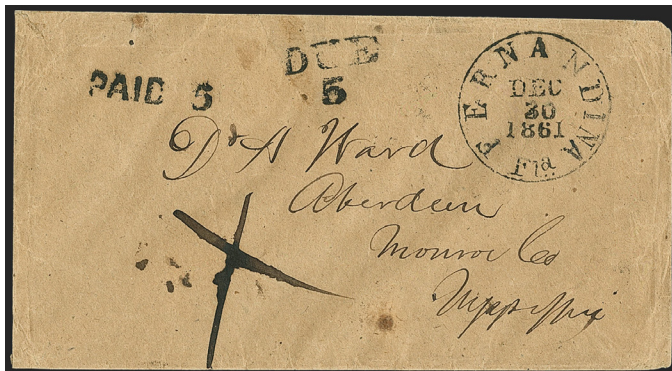 PAID 5
DUE
5
FERNANDINA
DEC
30
1861
Fla
Dr A Ward
Aberdeen
Monroe Co
Mississippi